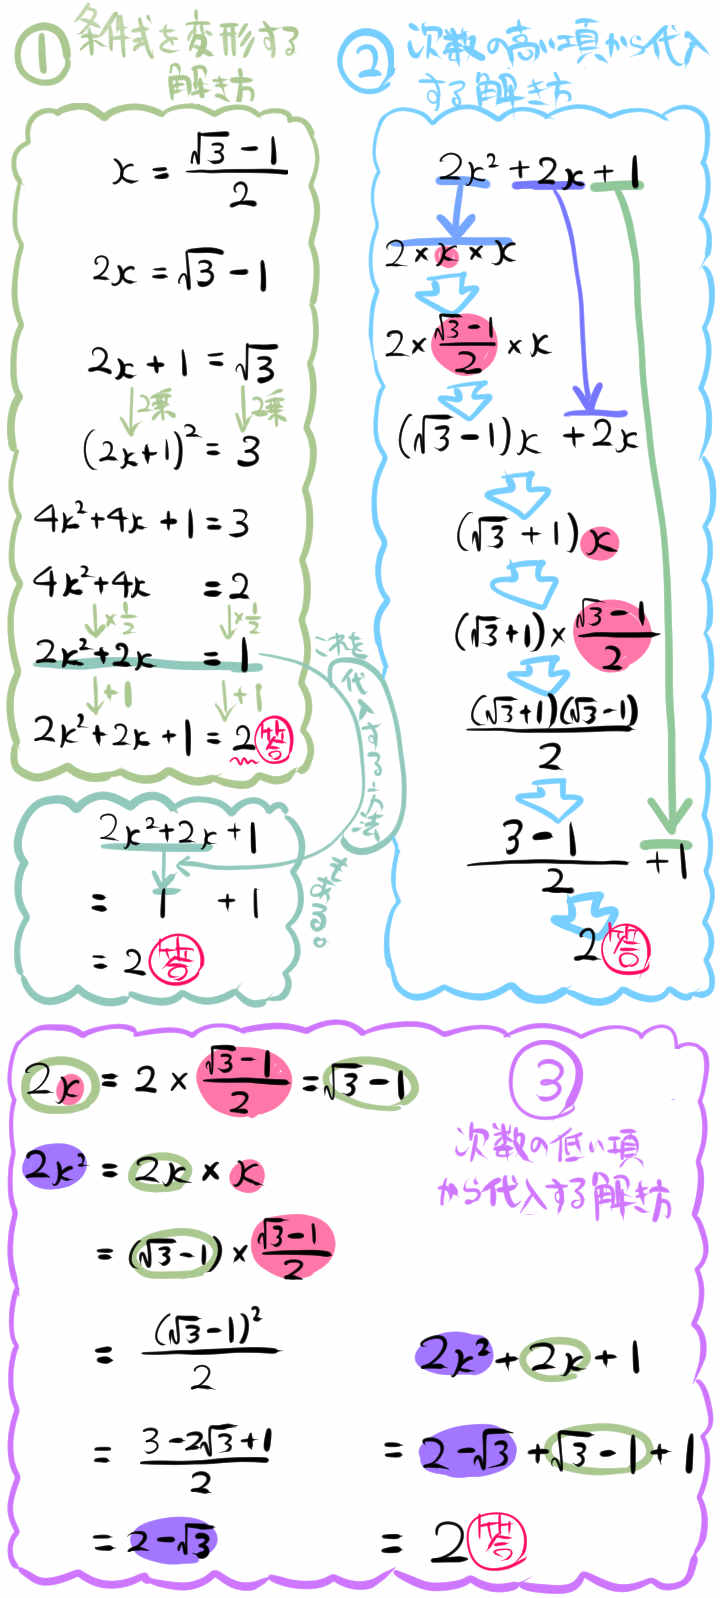 ① 条件式を変形する
解き方
x = (√3 − 1)/2
2x = √3 − 1
2x + 1 = √3
↓2乗 ↓2乗
(2x+1)² = 3
4x²+4x +1 = 3
4x²+4x = 2
↓×1/2 ↓×1/2
2x²+2x = 1
↓+1 ↓+1
2x²+2x+1 = 2 答
これを
代入する方法
もある。
2x²+2x+1
= 1 +1
= 2 答
② 次数の高い項から代入
する解き方
2x²+2x+1
2×x×x
2×(√3−1)/2×x
(√3−1)x +2x
(√3+1)x
(√3+1)×(√3−1)/2
(√3+1)(√3−1)/2
(3−1)/2 +1
2 答
③
次数の低い項
から代入する解き方
2x = 2×(√3−1)/2 = √3−1
2x² = 2x×x
= (√3−1)×(√3−1)/2
= (√3−1)²/2
= (3−2√3+1)/2
= 2−√3
2x²+2x+1
= 2−√3+√3−1+1
= 2 答